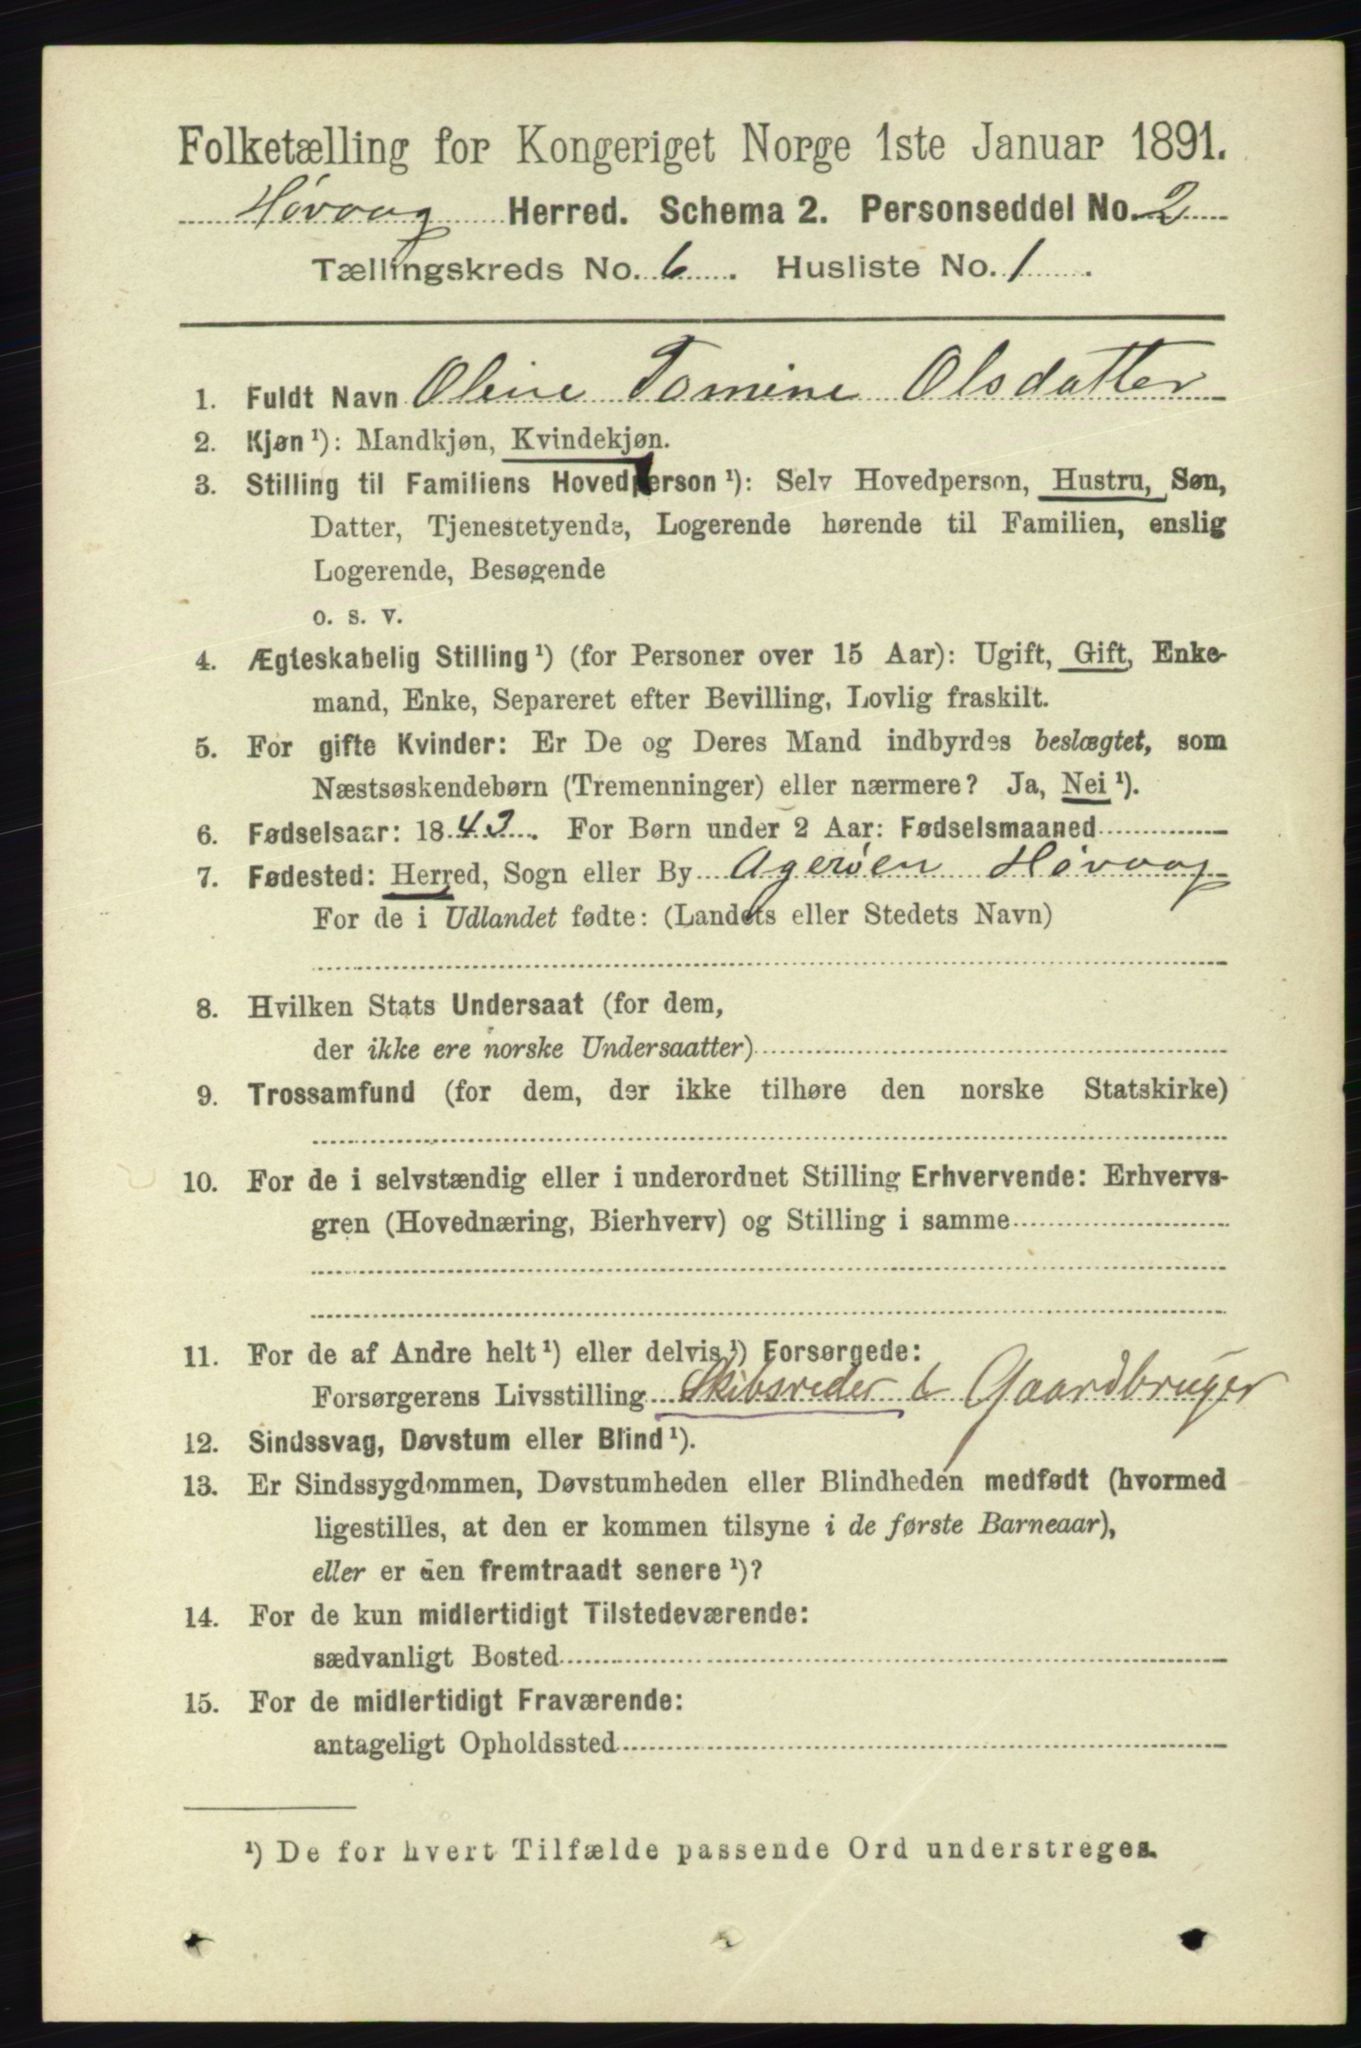 Folketælling for Kongeriget Norge 1ste Januar 1891.
Høvaag Herred. Schema 2. Personseddel No. 2
Tællingskreds No. 6. Husliste No. 1.
1. Fuldt Navn Oline Tomine Olsdatter
2. Kjøn ¹): Mandkjøn, Kvindekjøn.
3. Stilling til Familiens Hovedperson ¹): Selv Hovedperson, Hustru, Søn,
Datter, Tjenestetyende, Logerende hørende til Familien, enslig
Logerende, Besøgende
o. s. v.
4. Ægteskabelig Stilling ¹) (for Personer over 15 Aar): Ugift, Gift, Enke-
mand, Enke, Separeret efter Bevilling, Lovlig fraskilt.
5. For gifte Kvinder: Er De og Deres Mand indbyrdes beslægtet, som
Næstsøskendebørn (Tremenninger) eller nærmere? Ja, Nei ¹).
6. Fødselsaar: 1843. For Børn under 2 Aar: Fødselsmaaned
7. Fødested: Herred, Sogn eller By Agerøen Høvaag
For de i Udlandet fødte: (Landets eller Stedets Navn)
8. Hvilken Stats Undersaat (for dem,
der ikke ere norske Undersaatter)
9. Trossamfund (for dem, der ikke tilhøre den norske Statskirke)
10. For de i selvstændig eller i underordnet Stilling Erhvervende: Erhvervs-
gren (Hovednæring, Bierhverv) og Stilling i samme
11. For de af Andre helt ¹) eller delvis ¹) Forsørgede:
Forsørgerens Livsstilling Skibsreder & Gaardbruger
12. Sindssvag, Døvstum eller Blind ¹).
13. Er Sindssygdommen, Døvstumheden eller Blindheden medfødt (hvormed
ligestilles, at den er kommen tilsyne i de første Barneaar),
eller er den fremtraadt senere ¹)?
14. For de kun midlertidigt Tilstedeværende:
sædvanligt Bosted
15. For de midlertidigt Fraværende:
antageligt Opholdssted
¹) De for hvert Tilfælde passende Ord understreges.